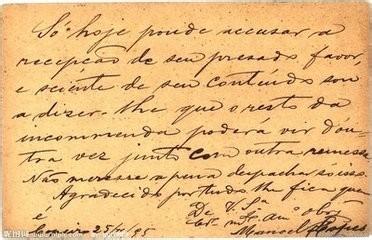 Só hoje poude accusar a
recepção de seu presado favor,
e sciente de seu contiúdo sou
a dizer-lhe que o resto da
incommenda poderá vir d'ou-
tra vez junto com outra remessa
Não merece a pena despachar só isso.
Agradecido por tudo lhe fica quem
é
De V. Sª
25 95
Manoel